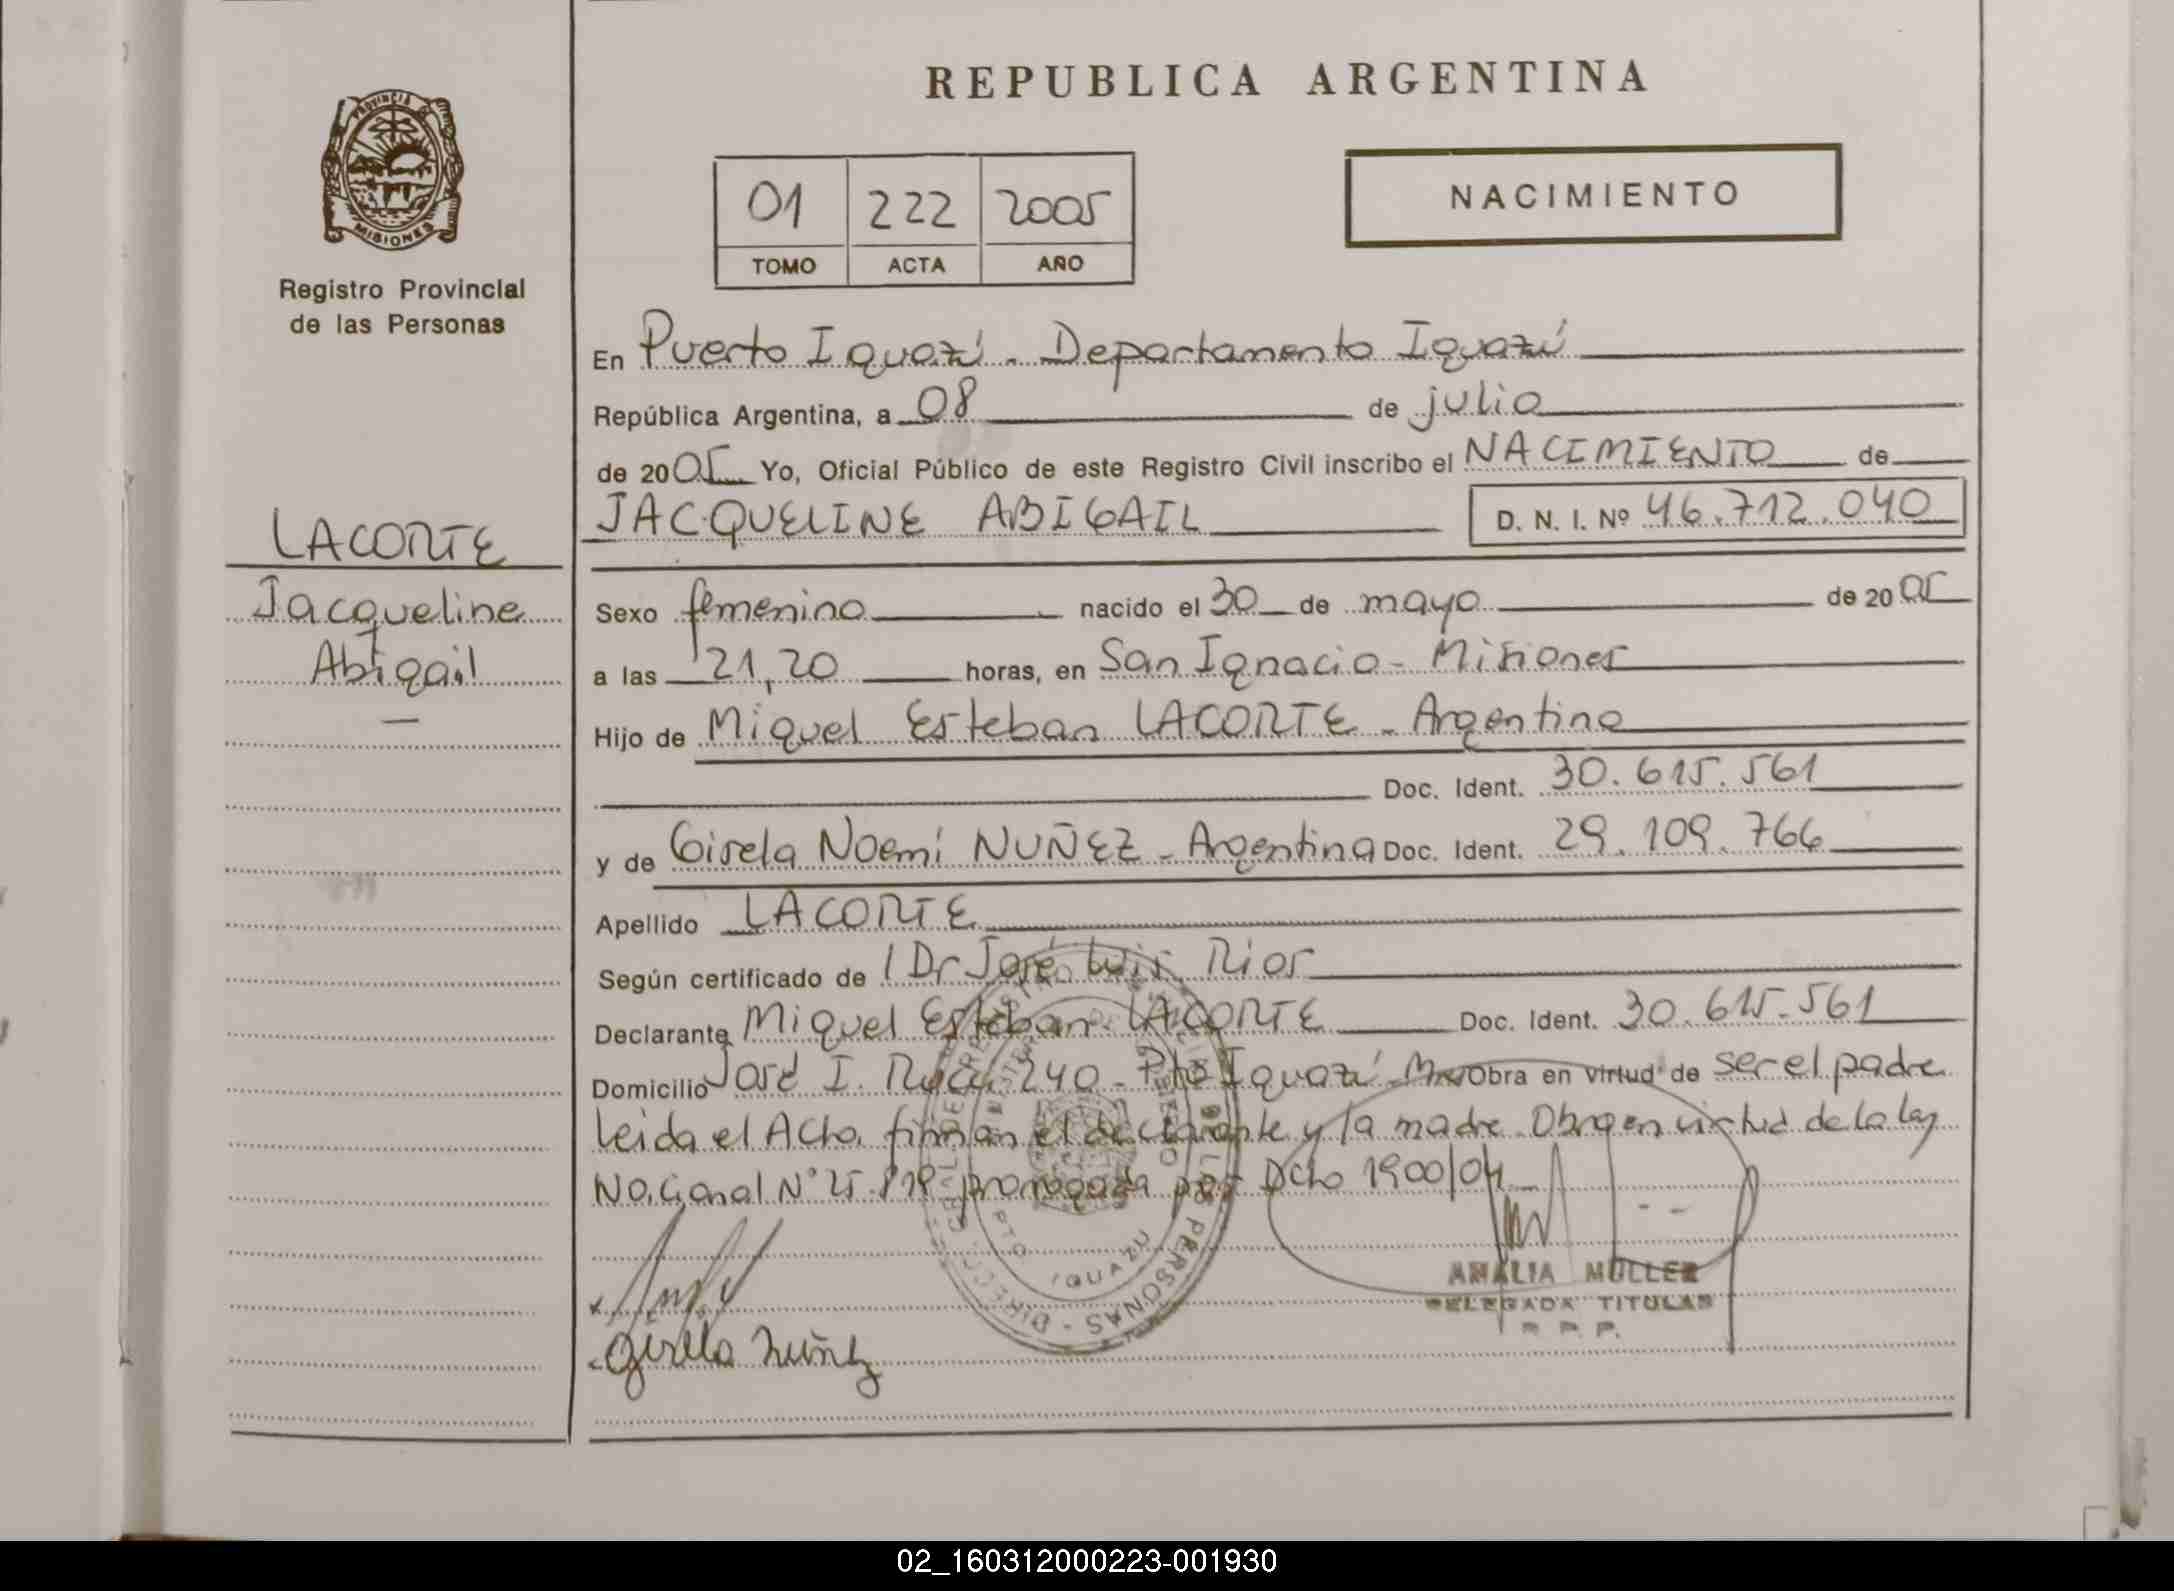 REPUBLICA ARGENTINA
PROVINCIA
MISIONES
Registro Provincial
de las Personas
01 222 2005
TOMO ACTA AÑO
NACIMIENTO
En Puerto Iguazú - Departamento Iguazú
República Argentina, a 08 de julio
de 2005 Yo, Oficial Público de este Registro Civil inscribo el NACIMIENTO de
JACQUELINE ABIGAIL D. N. I. Nº 46.712.040
LACORTE
Jacqueline
Abigail
Sexo femenino nacido el 30 de mayo de 2005
a las 21,20 horas, en San Ignacio - Misiones
Hijo de Miguel Esteban LACORTE - Argentino
Doc. Ident. 30.615.561
y de Gisela Noemí NUÑEZ - Argentina Doc. Ident. 29.109.766
Apellido LACORTE
Según certificado de Dr José Luis Rios
Declarante Miguel Esteban LACORTE Doc. Ident. 30.615.561
Domicilio José I. 240 - Pto Iguazú - Obra en virtud de ser el padre
Leida el Acta, firman el declarante y la madre. Obra en virtud de la ley
Nacional Nº 25.819 prorrogada por Dcto 1900/04
PTO IGUAZU
Gisela Nuñez
AMALIA MULLER
DELEGADA TITULAR
R. P. P.
02_160312000223-001930